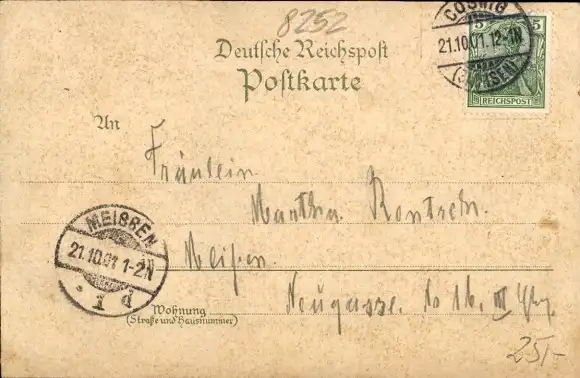 8252
COSWIG
5 5
21.10.01.12-1N
(SACHSEN)
REICHSPOST
Deutsche Reichspost
Postkarte
An
Fräulein
Martha Rentsch.
Meißen.
MEISSEN
21.10.01 1-2N
Neugasse. No 16. III
Wohnung
(Straße und Hausnummer)
25,-